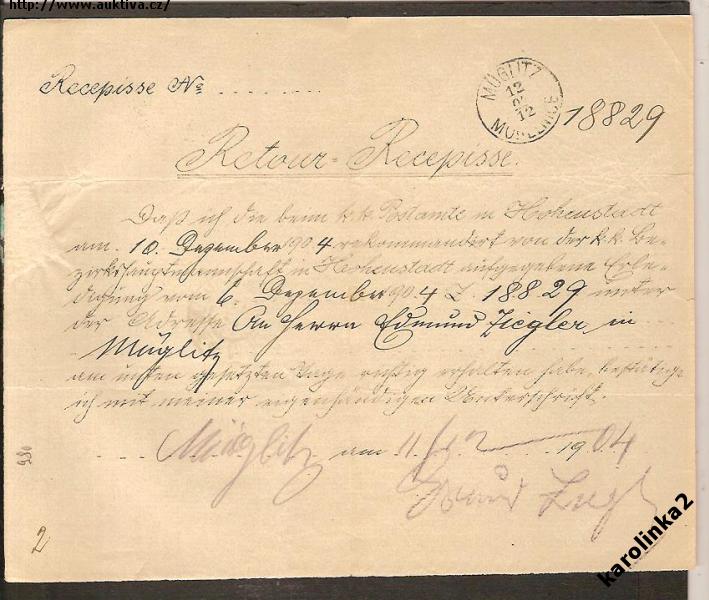 http://www.auktiva.cz/
Recepisse No ........
MÜGLITZ
12
12
MOHELNICE
18829
Retour-Recepisse.
Daß ich die beim k. k. Postamte in Hohenstadt
am 10. Dezember 1904 rekommandirt von der k. k. Be-
zirkshauptmannschaft in Hohenstadt aufgegebene Erle-
digung vom 6. Dezember 1904 Z. 18829 unter
der Adresse An Herrn Edmund Ziegler in
Müglitz
am unten gesetzten Tage richtig erhalten habe, bestätige
ich mit meiner eigenhändigen Unterschrift.
Müglitz am 11/12 1904
980
2
karolinka2